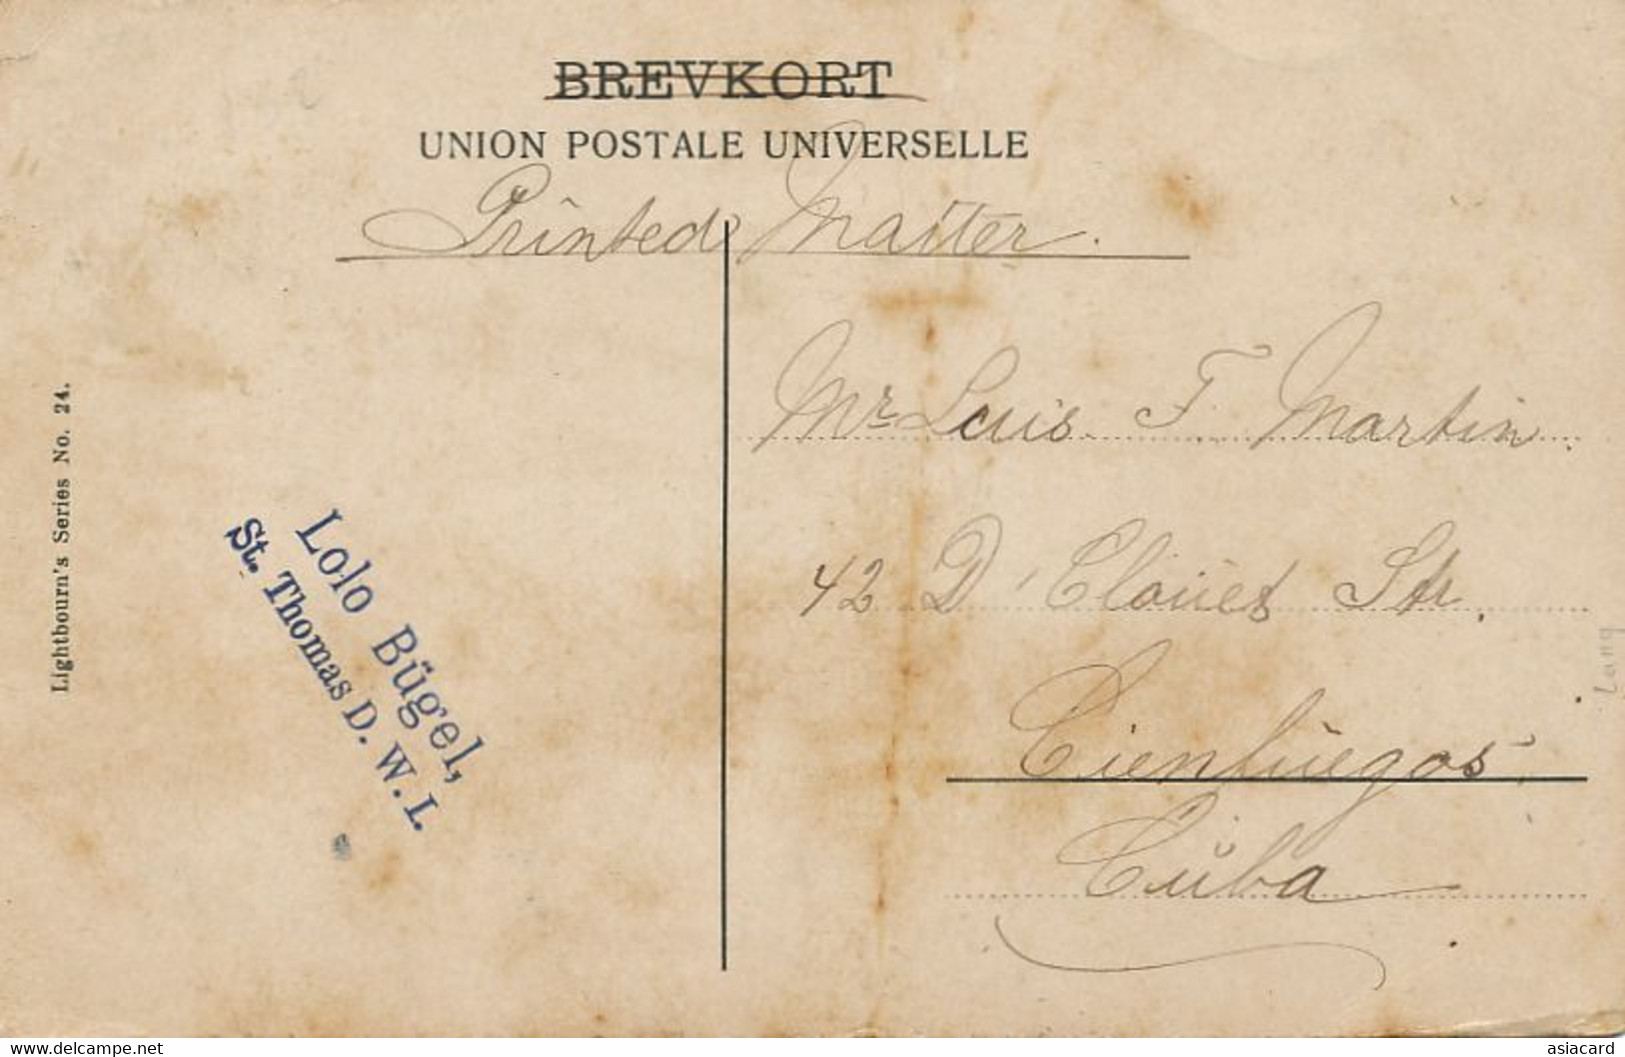 BREVKORT
UNION POSTALE UNIVERSELLE
Printed Matter.
Mr. Luis F. Martin.
42 D'Clouet Str.
Cienfuegos,
Cuba
Lolo Bügel,
St. Thomas D. W. I.
Lightbourn's Series No. 24.
Lang
delcampe.net
asiacard